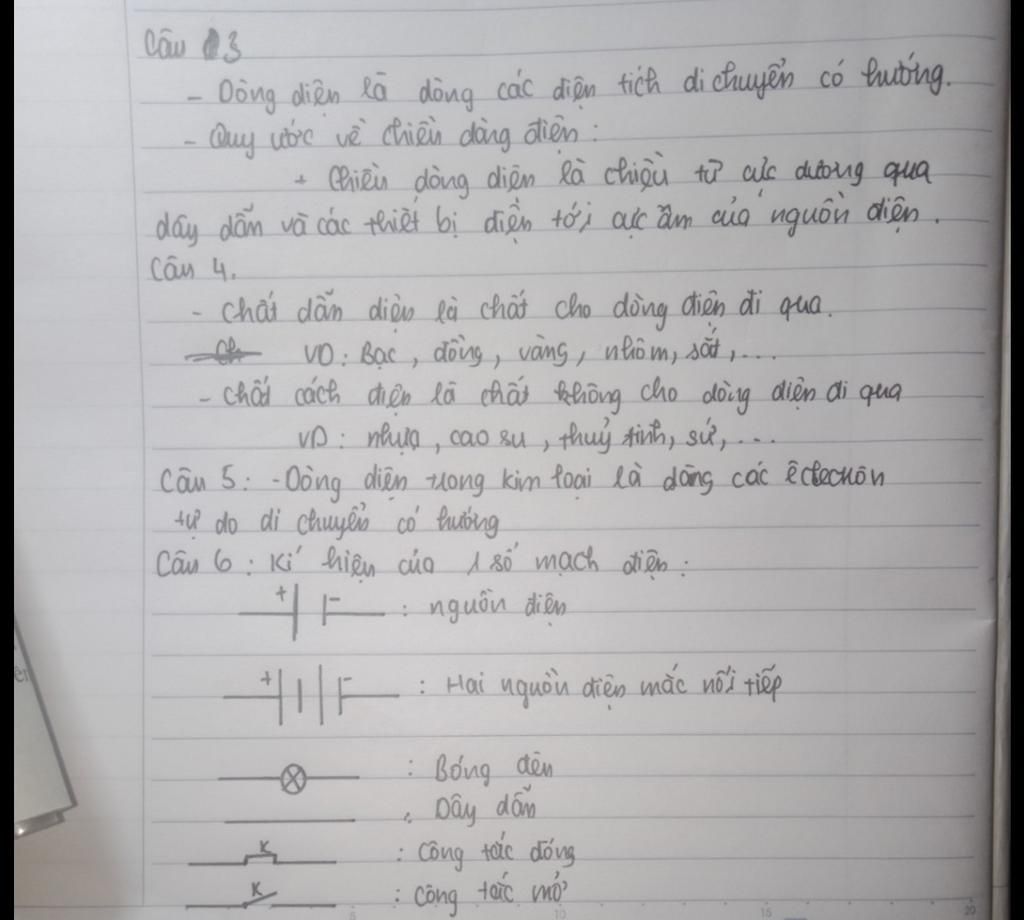 Câu 3
- Dòng điện là dòng các điện tích di chuyển có hướng.
- Quy ước về chiều dòng điện:
+ Chiều dòng điện là chiều từ cực dương qua
dây dẫn và các thiết bị điện tới cực âm của nguồn điện.
Câu 4.
- Chất dẫn điện là chất cho dòng điện đi qua.
VD: Bạc, đồng, vàng, nhôm, sắt,...
- Chất cách điện là chất không cho dòng điện đi qua
VD: nhựa, cao su, thuỷ tinh, sứ,...
Câu 5: - Dòng điện trong kim loại là dòng các êlectron
tự do di chuyển có hướng
Câu 6: Kí hiệu của 1 số mạch điện:
+ - : nguồn điện
+ - : Hai nguồn điện mắc nối tiếp
: Bóng đèn
: Dây dẫn
K : Công tắc đóng
K : Công tắc mở
5 10 15 20